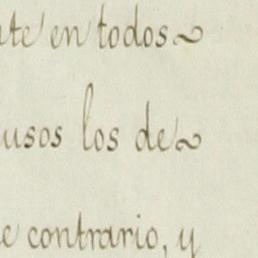 nte en todos~
usos los de~
e contrario, y